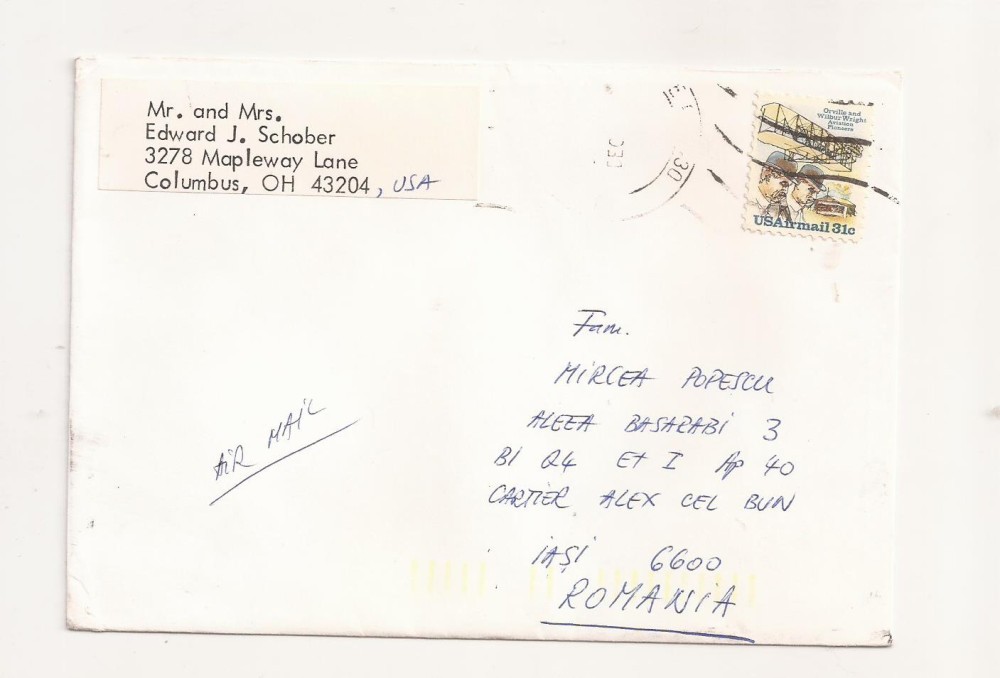 Mr. and Mrs.
Edward J. Schober
3278 Mapleway Lane
Columbus, OH 43204, USA
DEC
Orville and
Wilbur Wright
Aviation
Pioneers
USAirmail 31c
Fam.
MIRCEA POPESCU
ALEEA BASARABI 3
Bl Q4 Et I Ap 40
CARTIER ALEX CEL BUN
IAȘI 6600
ROMANIA
AIR MAIL